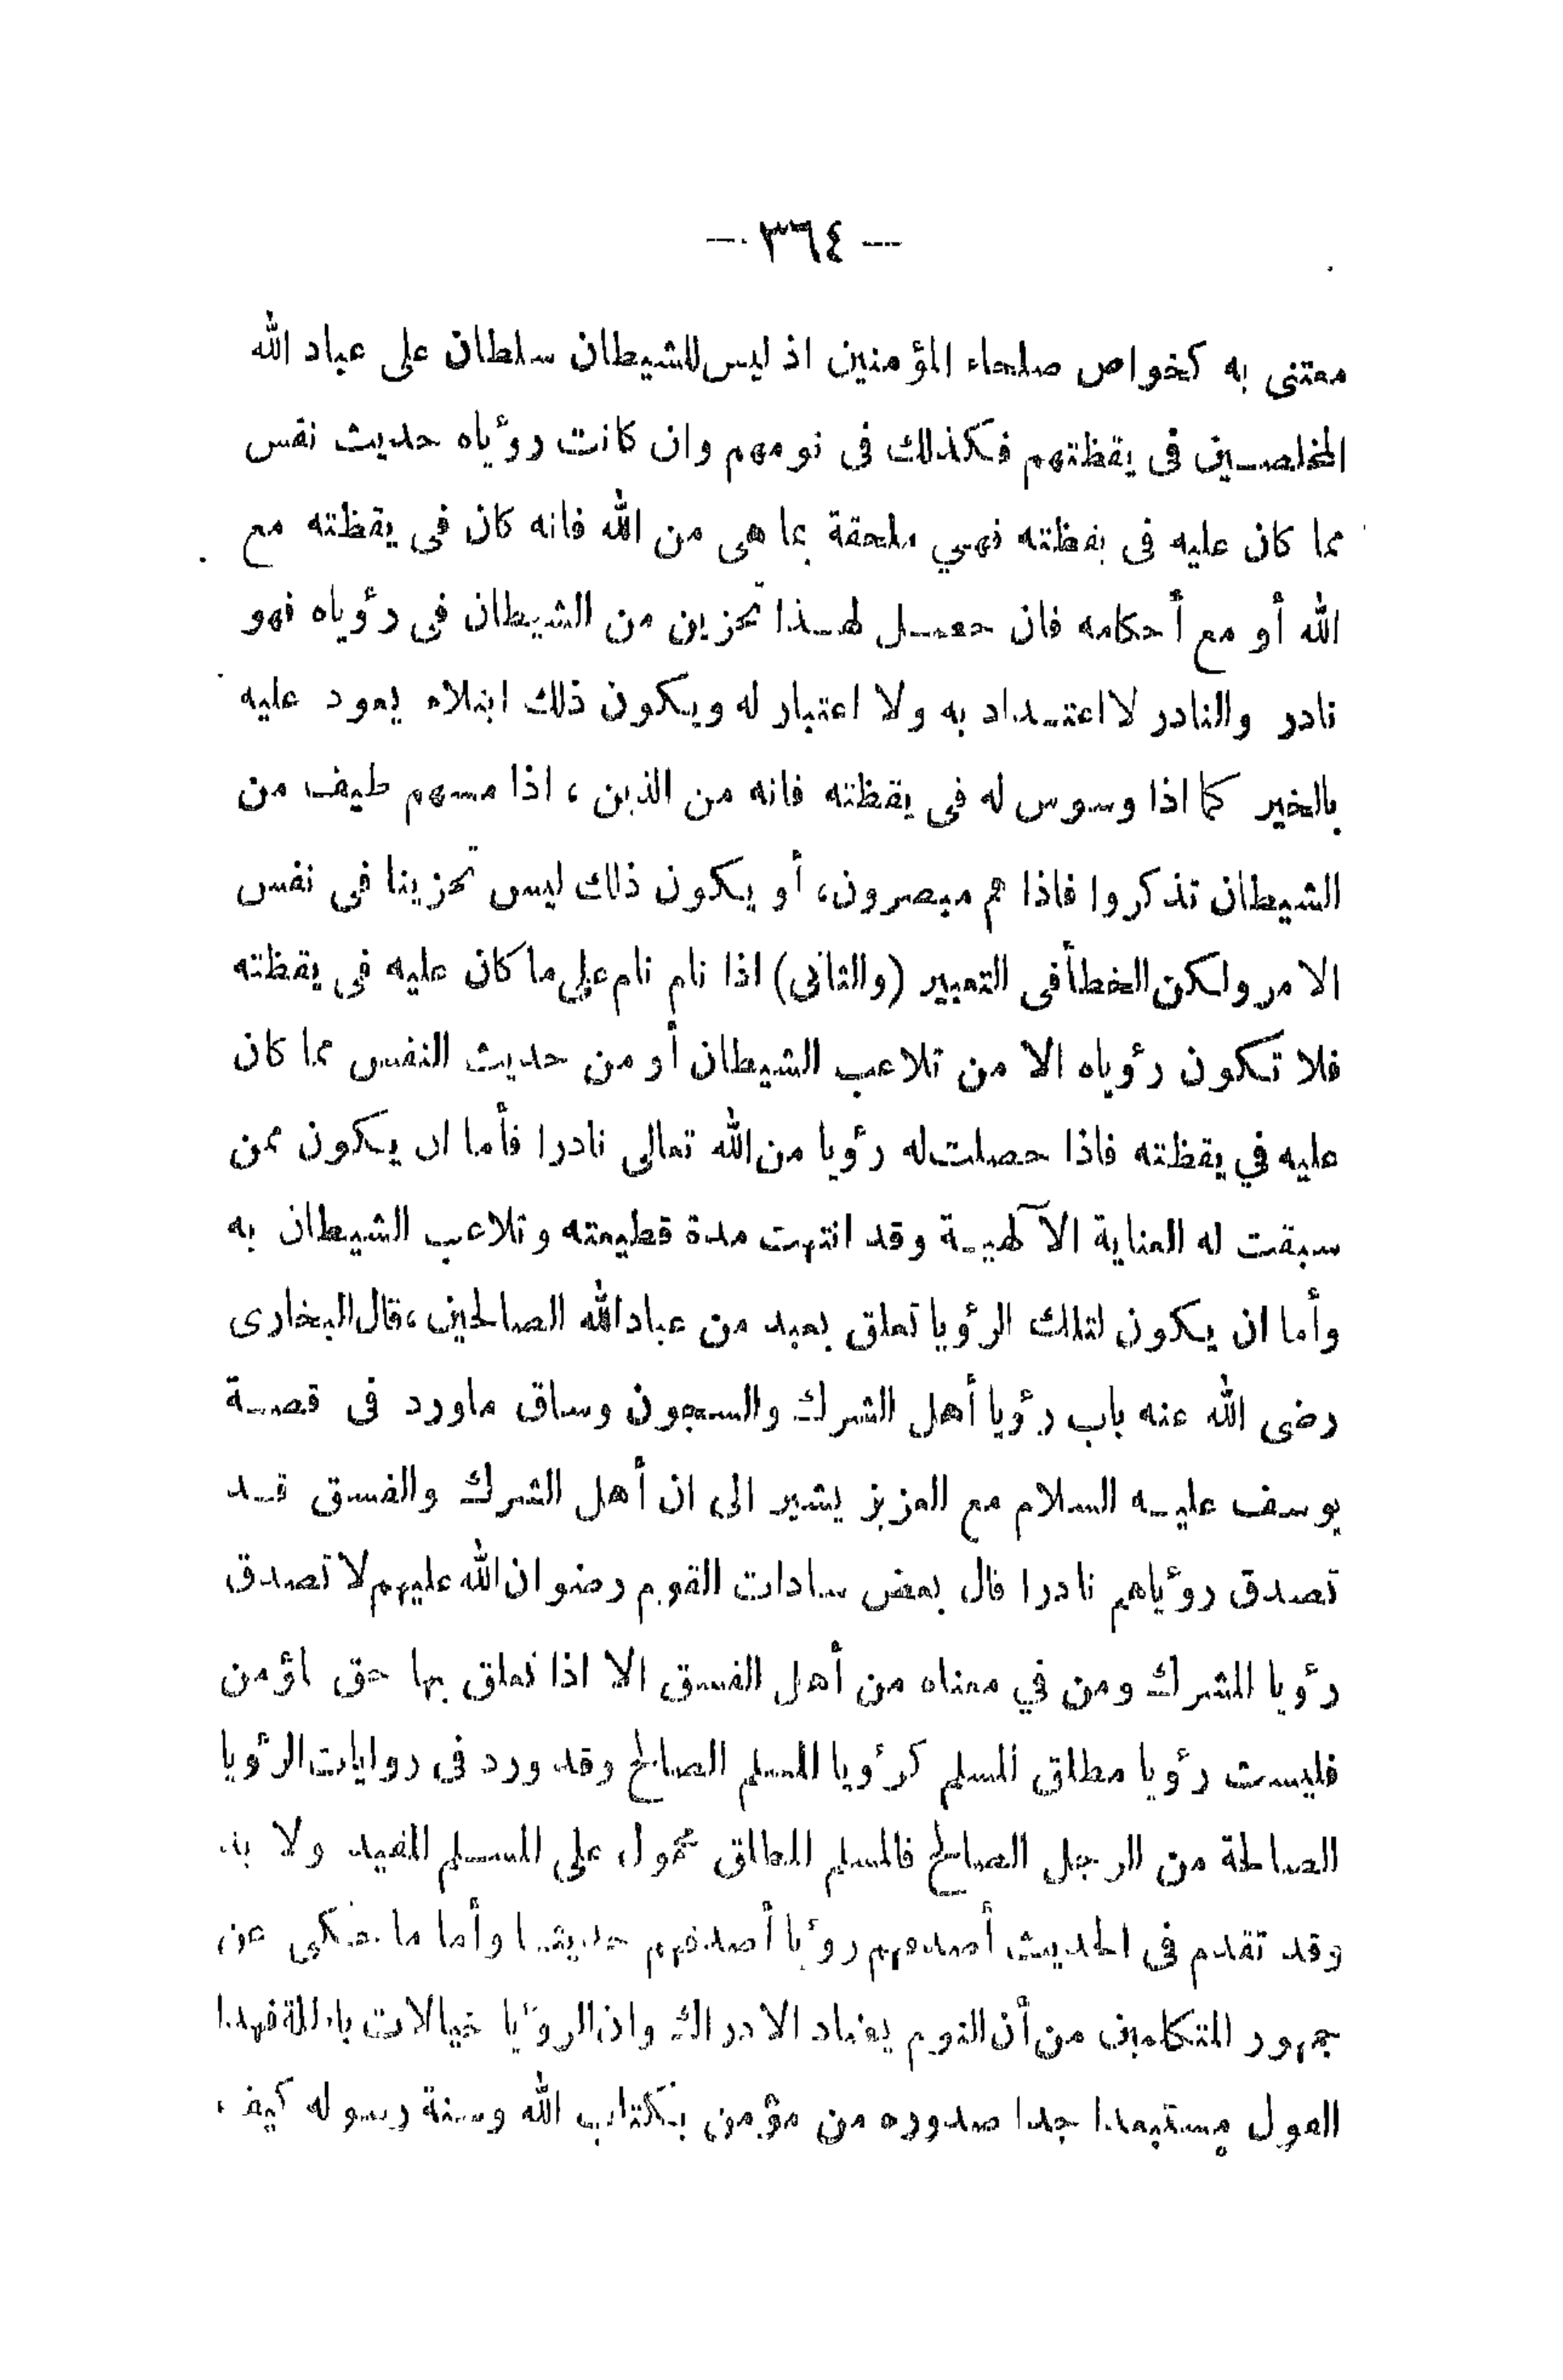 — ٣٦٤ —
معتنى به كخواص صلحاء المؤمنين اذ ليس للشيطان سلطان على عباد الله
المخلصين فى يقظتهم فكذلك فى نومهم وان كانت رؤياه حديث نفس
مما كان عليه فى يقظته فهي ملحقة بما هى من الله فانه كان فى يقظته مع
الله أو مع أحكامه فان حصل لهذا تحزين من الشيطان فى رؤياه فهو
نادر والنادر لا اعتداد به ولا اعتبار له ويكون ذلك ابتلاء يعود عليه
بالخير كما اذا وسوس له فى يقظته فانه من الذين ، اذا مسهم طيف من
الشيطان تذكروا فاذا هم مبصرون، أو يكون ذلك ليس تحزينا فى نفس
الامر ولكن الخطأ فى التعبير (والثانى) اذا نام نام على ما كان عليه فى يقظته
فلا تكون رؤياه الا من تلاعب الشيطان أو من حديث النفس مما كان
عليه في يقظته فاذا حصلت له رؤيا من الله تعالى نادرا فأما ان يكون ممن
سبقت له العناية الآلهية وقد انتهت مدة قطيعته وتلاعب الشيطان به
وأما ان يكون لتلك الرؤيا تعلق بعبد من عباد الله الصالحين ، قال البخارى
رضى الله عنه باب رؤيا أهل الشرك والسجون وساق ماورد فى قصة
يوسف عليه السلام مع العزيز يشير الى ان أهل الشرك والفسق قد
تصدق رؤياهم نادرا قال بعض سادات القوم رضوان الله عليهم لا تصدق
رؤيا المشرك ومن في معناه من أهل الفسق الا اذا تعلق بها حق لمؤمن
فليست رؤيا مطلق المسلم كرؤيا المسلم الصالح وقد ورد فى روايات الرؤيا
الصالحة من الرجل الصالح فالمسلم المطلق محمول على المسلم المقيد ولا بد
وقد تقدم فى الحديث أصدقهم رؤيا أصدقهم حديثا وأما ما يحكى عن
جمهور المتكلمين من أن النوم يضاد الادراك وان الرؤيا خيالات باطلة فهذا
القول مستبعد جدا صدوره من مؤمن بكتاب الله وسنة رسوله كيف